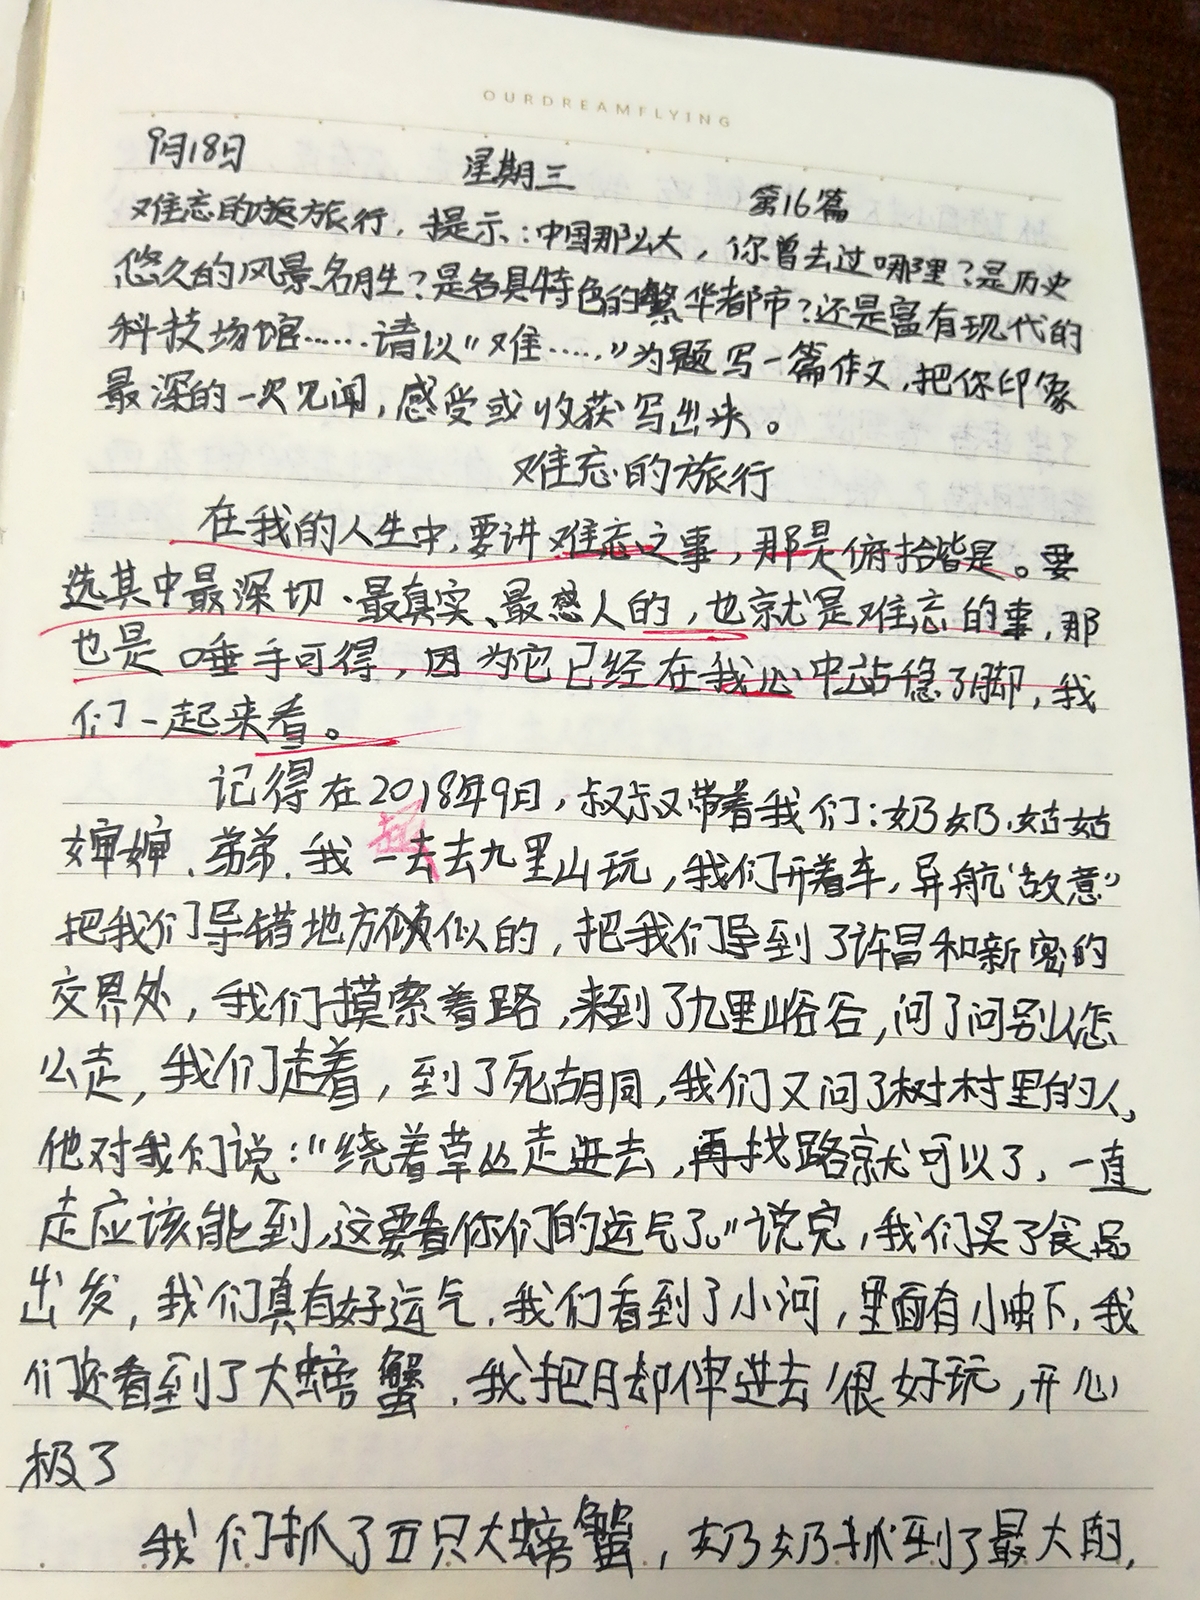 OURDREAMFLYING
9月18日 星期三 第16篇
难忘的旅旅行，提示：中国那么大，你曾去过哪里？是历史
悠久的风景名胜？是各具特色的繁华都市？还是富有现代的
科技场馆……请以"难……"为题写一篇作文，把你印象
最深的一次见闻，感受或收获写出来。
难忘的旅行
在我的人生中，要讲难忘之事，那是俯拾皆是。要
选其中最深切、最真实、最感人的，也就是难忘的事，那
也是唾手可得，因为它已经在我心中站稳了脚，我
们一起来看。
记得在2018年9日，叔叔带着我们：奶奶、姑姑
婶婶、弟弟、我一去去九里山玩，我们开着车，导航"故意"
起
把我们导错地方似的，把我们导到了许昌和新密的
交界处，我们摸索着路，来到了九里峪谷，问了问别人怎
么走，我们走着，到了死胡同，我们又问了树村里的人，
他对我们说："绕着草丛走进去，再找路就可以了，一直
走应该能到，这要看你们的运气了。"说完，我们买了食品
出发，我们真有好运气，我们看到了小河，里面有小虾，我
们还看到了大螃蟹，我把脚伸进去很好玩，开心
极了
我们抓了五只大螃蟹，奶奶抓到了最大的，